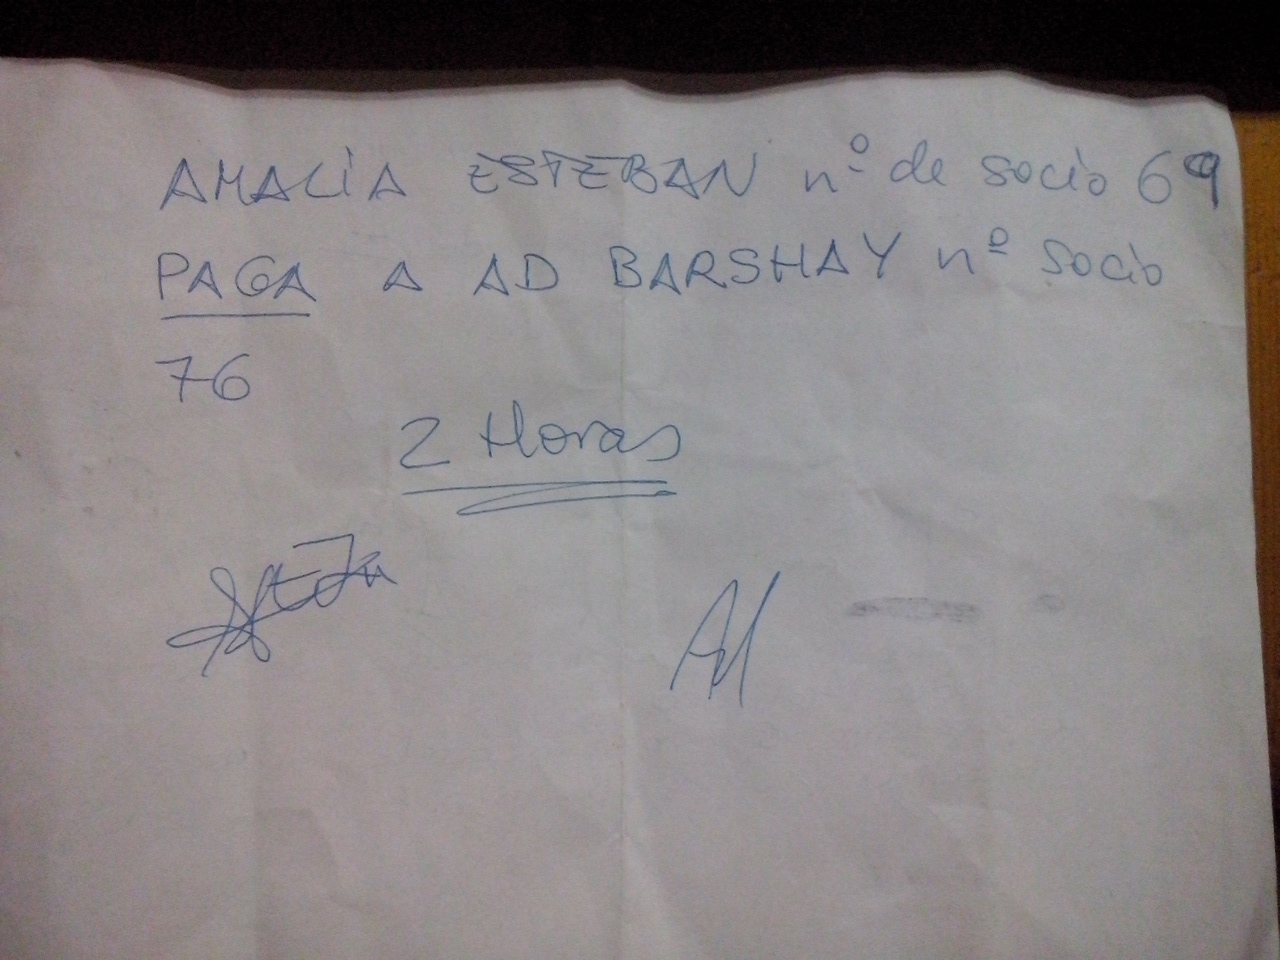 AMALIA ESTEBAN nº de socio 69
PAGA A AD BARSHAY nº socio
76
2 Horas
Ad